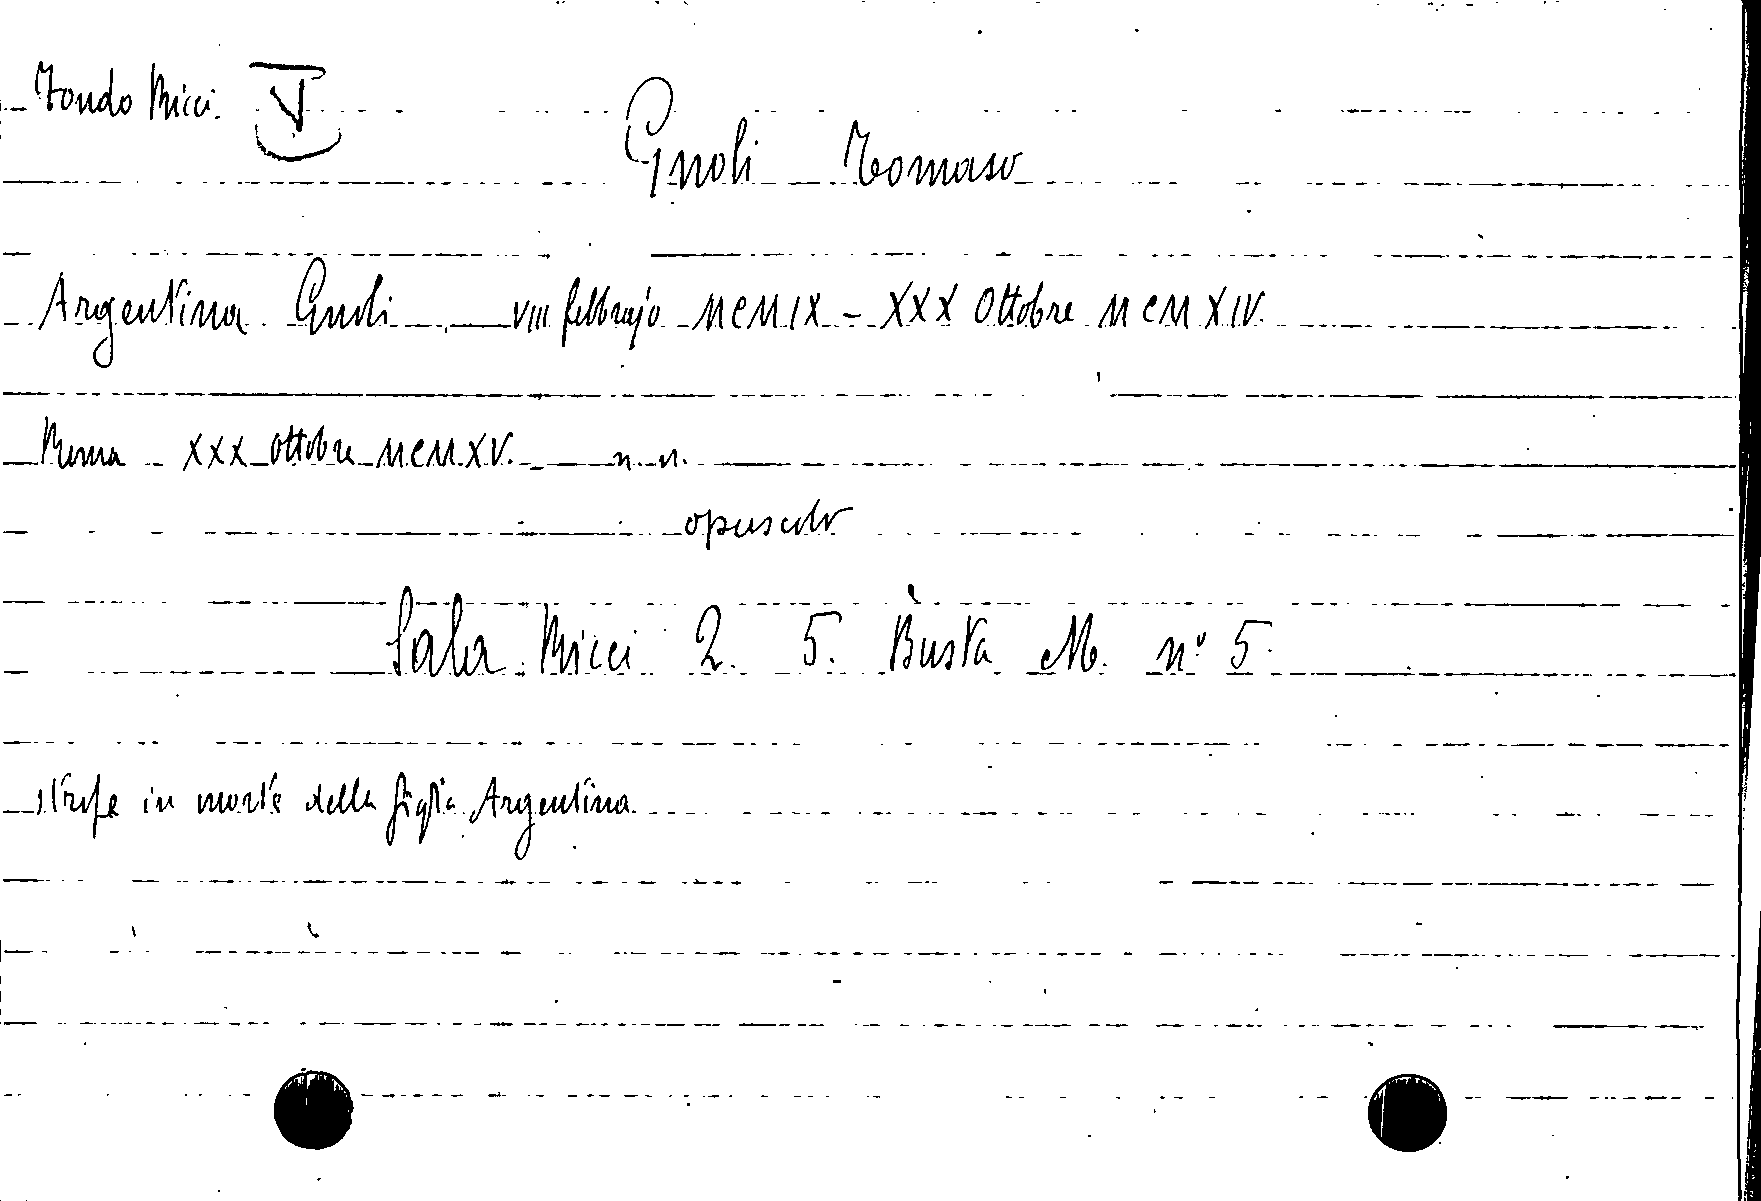 Fondo Ricci. V
Gnoli Tomaso
Argentina Gnoli VIII febbrajo MCMIX - XXX Ottobre MCMXIV.
Roma XXX Ottobre MCMXV. n. n.
opuscolo
Sala Ricci 2. 5. Busta M. n° 5.
strofe in morte della figlia Argentina